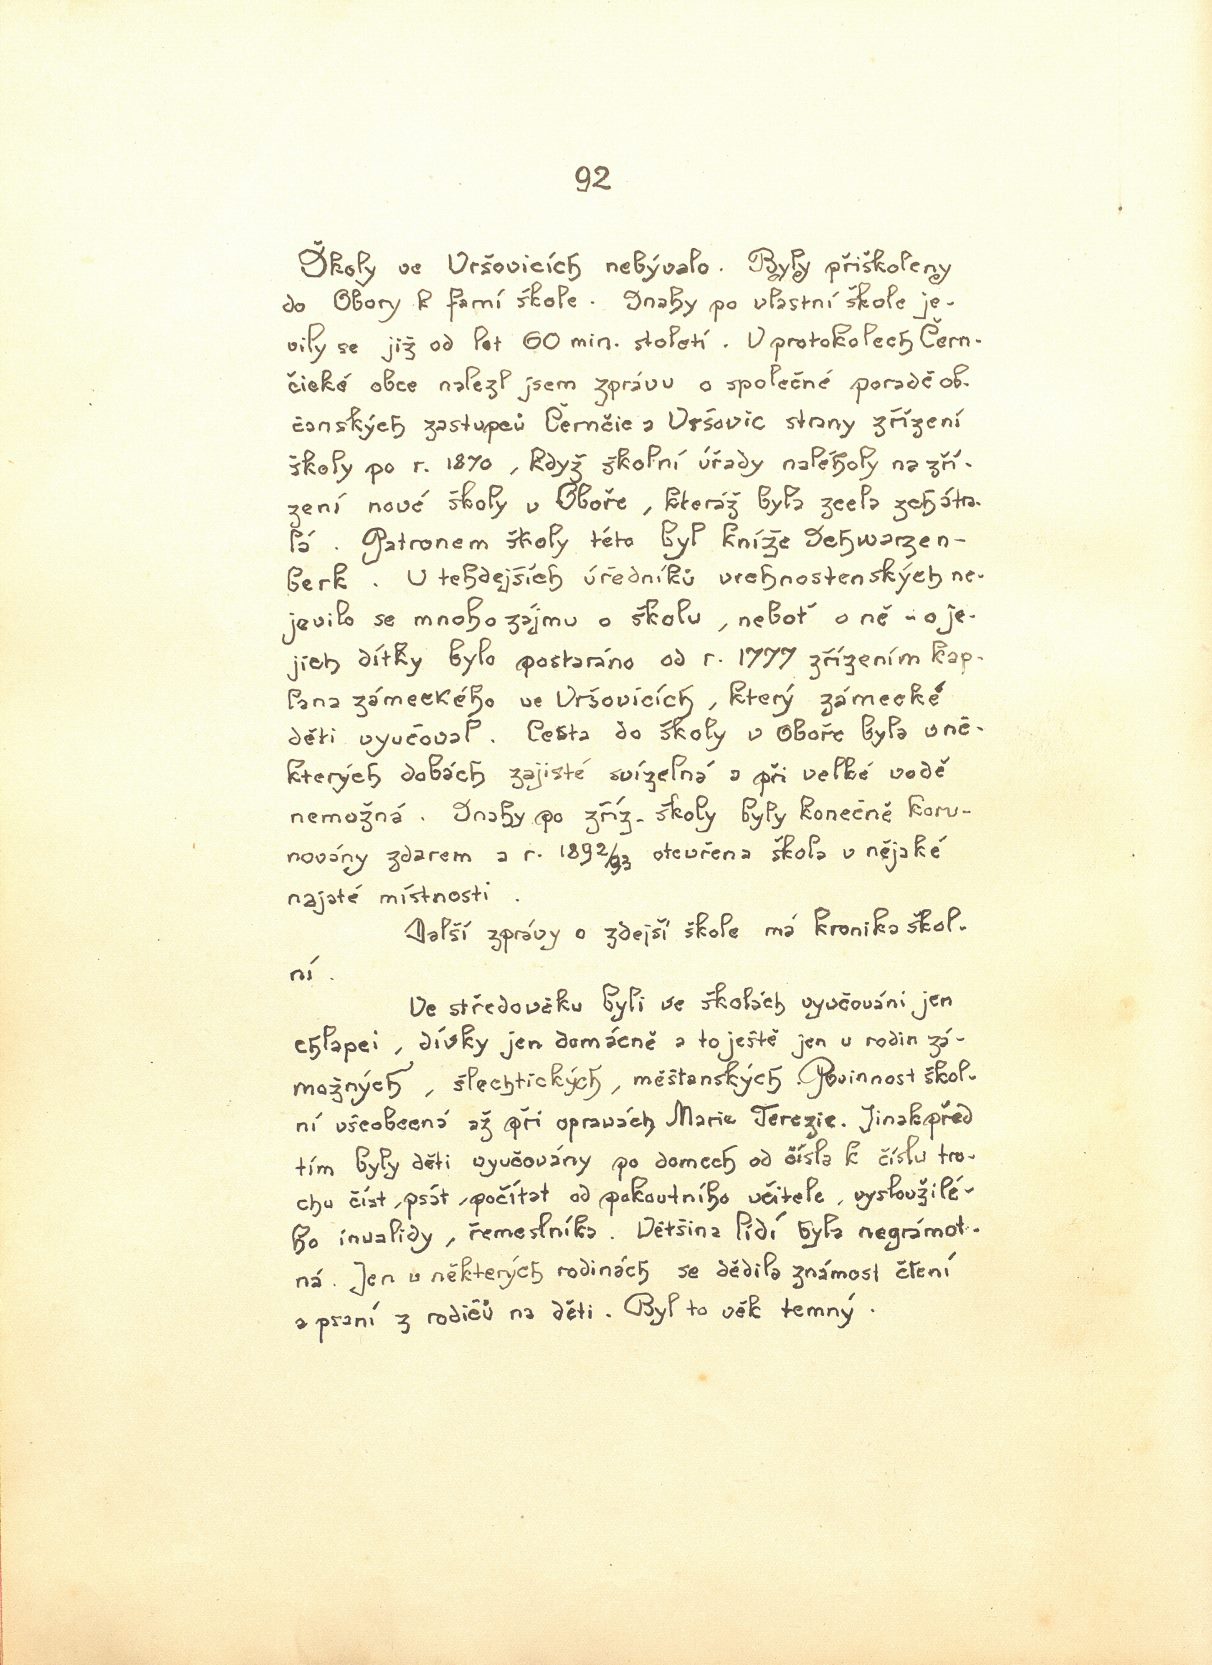 92
Školy ve Vršovicích nebývalo. Byly přiškoleny
do Obory k farní škole. Snahy po vlastní škole je-
vily se již od let 60 min. století. V protokolech Čern-
čické obce nalezl jsem zprávu o společné poradě ob-
čanských zastupců Černčic a Vršovic strany zřízení
školy po r. 1870, když školní úřady naléhaly na zří-
zení nové školy v Oboře, kteráž byla zcela zchátra-
lá. Patronem školy této byl kníže Schwarzen-
berk. U tehdejších úředníků vrchnostenských ne-
jevilo se mnoho zájmu o školu, neboť o ně - o je-
jich dítky bylo postaráno od r. 1777 zřízením kap-
lana zámeckého ve Vršovicích, který zámecké
děti vyučoval. Cesta do školy v Oboře byla v ně-
kterých dobách zajisté svízelná a při velké vodě
nemožná. Snahy po zříz. školy byly konečně koru-
novány zdarem a r. 1892/93 otevřena škola v nějaké
najaté místnosti.
Další zprávy o zdejší škole má kronika škol-
ní.
Ve středověku byli ve školách vyučováni jen
chlapci, dívky jen domácně a to ještě jen u rodin zá-
možných, šlechtických, měšťanských. Povinnost škol-
ní všeobecná až při opravách Marie Terezie. Jinak před
tím byly děti vyučovány po domech od čísla k číslu tro-
chu číst, psát, počítat od pokoutního učitele, vysloužilé-
ho invalidy, řemeslníka. Většina lidí byla negramot-
ná. Jen v některých rodinách se dědila známost čtení
a psaní z rodičů na děti. Byl to věk temný.